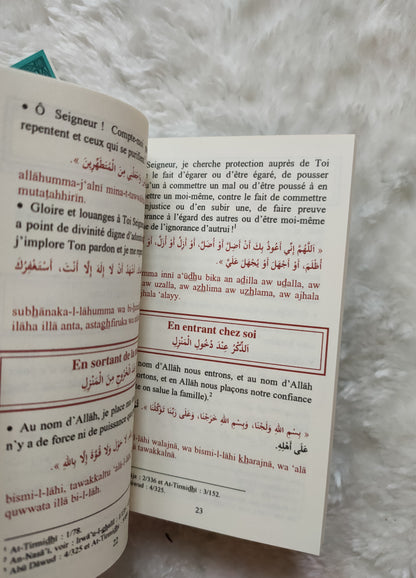 • Ô Seigneur ! Compte-moi
repentent et ceux qui se purifient
وَاجْعَلْنِي مِنَ الْمُتَطَهِّرِينَ ».
allâhumma-j'alnî mina-t-
mutaṭahhirîn.
• Gloire et louanges à Toi Seigneur
a point de divinité digne d'adoration
j'implore Ton pardon et je me
أَنْ لَا إِلَهَ إِلَّا أَنْتَ، أَسْتَغْفِرُكَ
subḥânaka-l-lâhumma wa bi-
ilâha illâ anta, astaghfiruka wa
En sortant de la
الْخُرُوجِ مِنَ الْمَنْزِلِ
• Au nom d'Allâh, je place
n'y a de force ni de puissance
حَوْلَ وَلَا قُوَّةَ إِلَّا بِاللَّهِ ».
bismi-l-lâhi, tawakkaltu 'alâ-
quwwata illâ bi-l-lâh.
¹ At-Tirmidhî : 1/78.
² An-Nasâ'î, voir : Irwâ'e-l-ghalîl
³ Abû Dâwud : 4/325 et At-Tirmidhî
22
Seigneur, je cherche protection auprès de Toi
le fait d'égarer ou d'être égaré, de pousser
à commettre un mal ou d'être poussé à en
un moi-même, contre le fait de commettre
injustice ou d'en subir une, de faire preuve
à l'égard des autres ou d'être moi-même
de l'ignorance d'autrui!
« اللَّهُمَّ إِنِّي أَعُوذُ بِكَ أَنْ أَضِلَّ أَوْ أُضَلَّ، أَوْ أَزِلَّ أَوْ أُزَلَّ، أَوْ
أُظْلَمَ، أَوْ أَجْهَلَ أَوْ يُجْهَلَ عَلَيَّ ».
innî a'ûdhu bika an aḍilla aw uḍalla, aw
aw uzalla, aw aẓhlima aw uẓhlama, aw ajhala
'alayy.
En entrant chez soi
الذِّكْرُ عِنْدَ دُخُولِ الْمَنْزِلِ
nom d'Allâh nous entrons, et au nom d'Allâh
sortons, et en Allâh nous plaçons notre confiance
on salue la famille).²
« بِسْمِ اللَّهِ وَلَجْنَا، وَبِسْمِ اللَّهِ خَرَجْنَا، وَعَلَى رَبِّنَا تَوَكَّلْنَا ».
عَلَى أَهْلِهِ.
walajnâ, wa bismi-l-lâhi kharajnâ, wa 'alâ
tawakkalnâ.
: 2/336 et At-Tirmidhî : 3/152.
: 4/325.
23